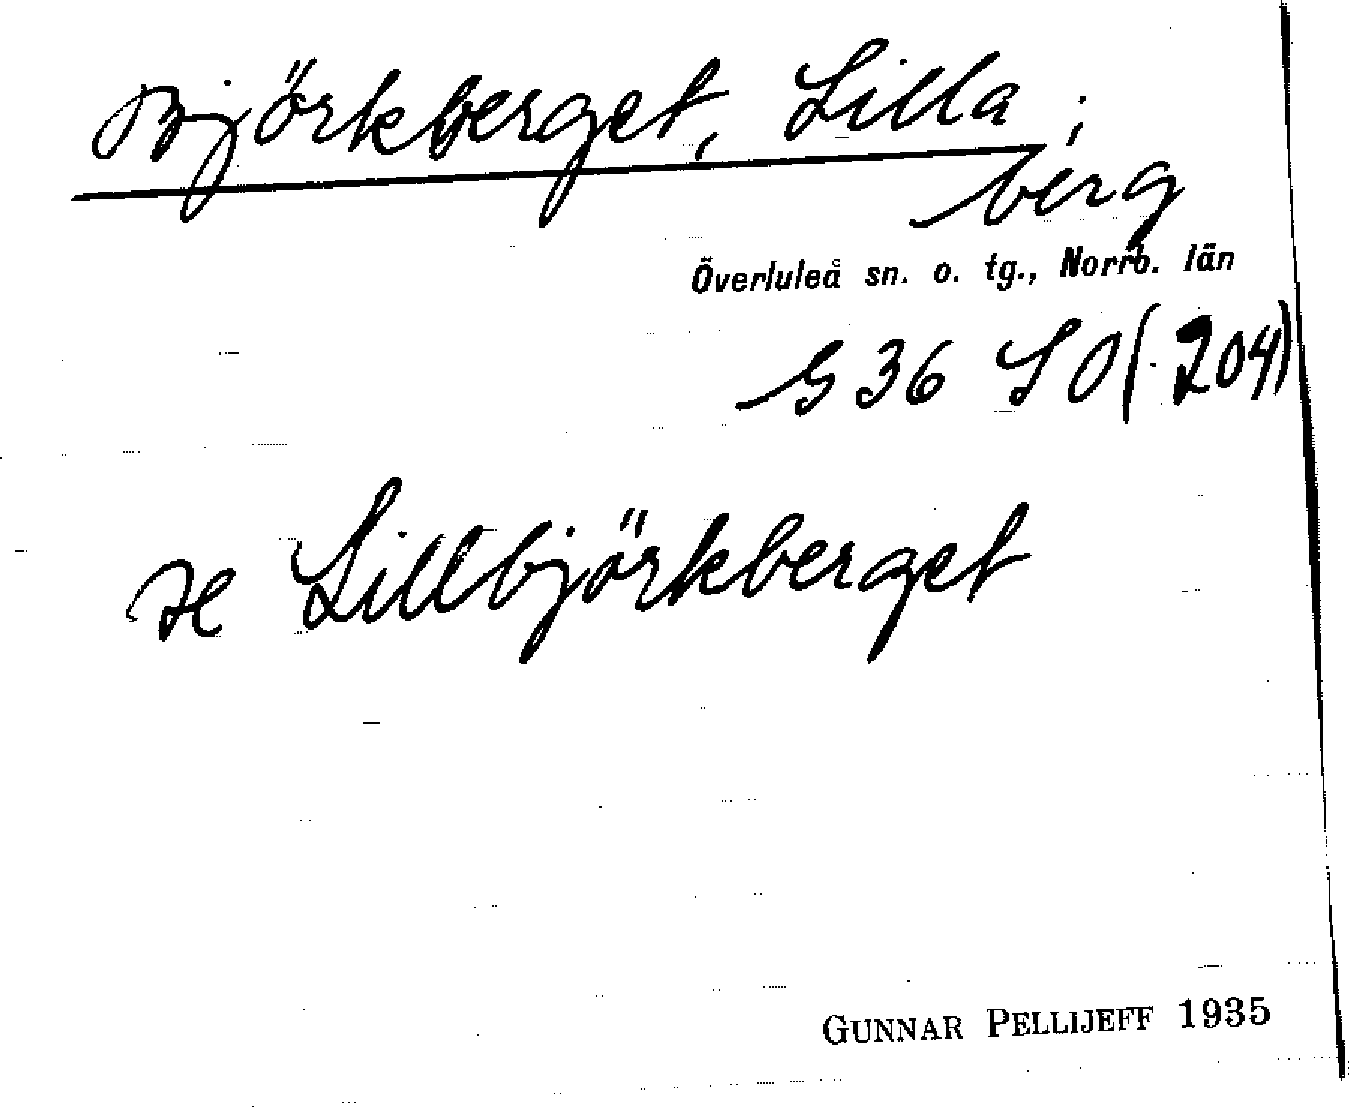 Björkberget, Lilla;
berg
Överluleå sn. o. tg., Norrb. län
G 36 SO (204)
se Lillbjörkberget
GUNNAR PELLIJEFF 1935